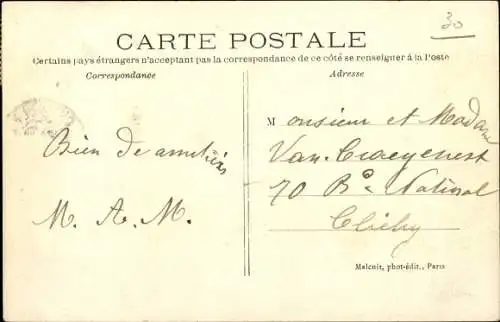 30
CARTE POSTALE
Certains pays étrangers n'acceptant pas la correspondance de ce côté se renseigner à la Poste
Correspondance
Adresse
Monsieur et Madame
Bien de
70 Bd National
M. A. M.
Clichy
Malcuit, phot-édit., Paris